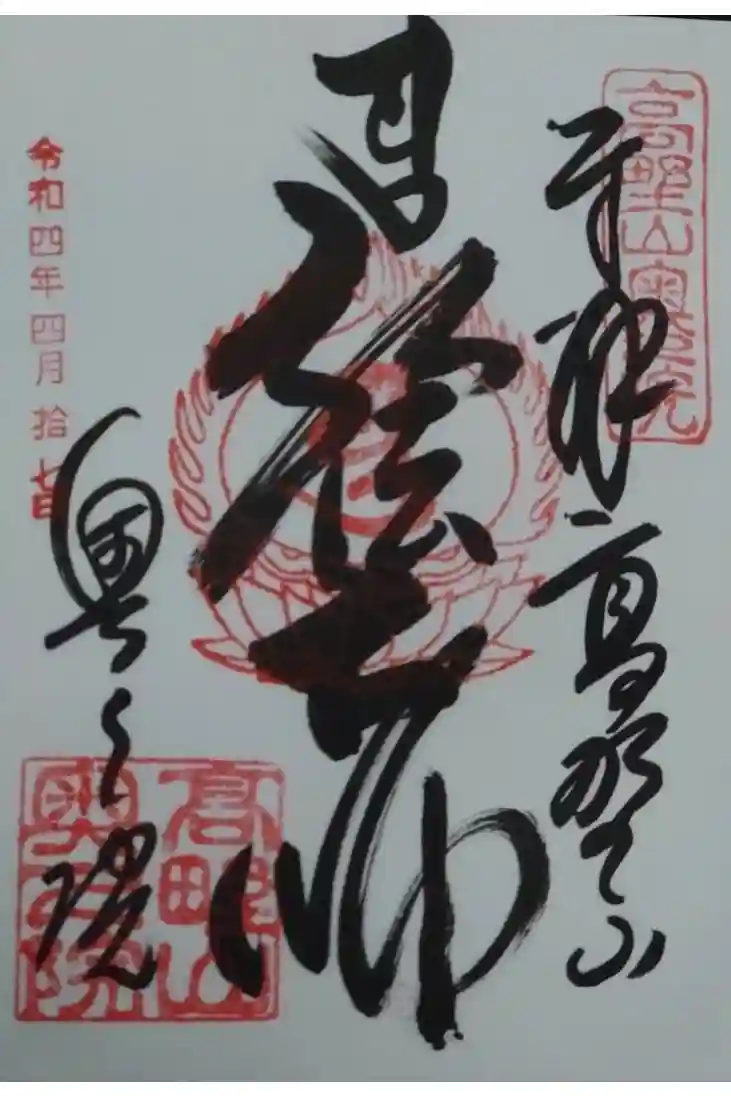 高野山奥之院
奉拝 高野山
弘法大師
奥之院
高野山奥之院
令和四年四月拾七日